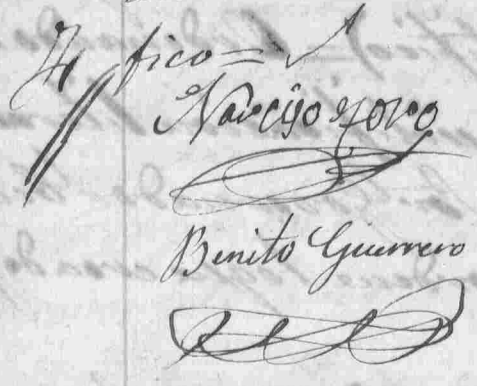 fico=
Narciso Toro
Benito Guerrero